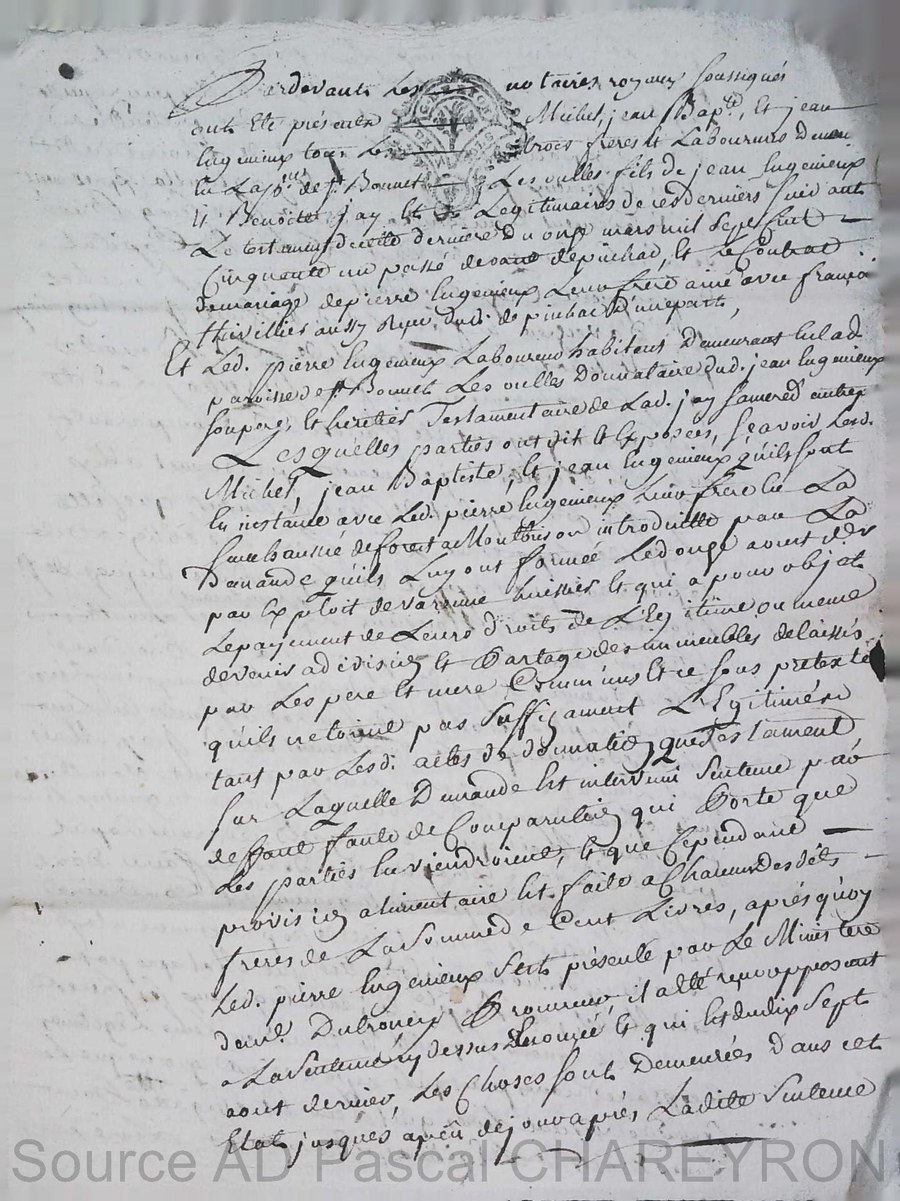 Pardevant Les notaires royaux soussignés
ont Eté présents Michel, jean Bapte, Et jean
Ingenieux tous trois freres et Laboureurs
En La de st Bonnet Les oulles fils de jean Ingenieux
Et Benoite jay Et Legitimaires de ces derniers suivant
Le testament de cette derniere du onze mars mil sept cent
Cinquante un passé devant depuichad, Et le Contrat
demariage depierre Ingenieux Leur frere ainé avec
thivillier aussy Reçu dud. de d'une part,
Et Led. pierre Ingenieux Laboureur habitant Demeurant En lad.
paroisse de st Bonnet Les oulles Donnataire dud. jean Ingenieux
son pere, Et héritier Testamentaire de Lad. jay sa mere d'autre part
Lesquelles parties ont dit Et Exposées, sçavoir Lesd.
Michel, jean Baptiste, Et jean Ingenieux qu'ils sont
En instance avec Led. pierre Ingenieux Leur frere En La
senechaussée de forest a Montbrison introduitte par La
Demande qu'ils Luy ont formée Le douze aout
par Exploit de varenne huissier Et qui a pour objet
Le payement de Leurs droits de L'Egitime ou meme
de venir a division Et Partage des immeubles delaissés
par Les pere Et mere Communs Et ce sous pretexte
qu'ils n'etoient pas suffizament L'Egitimés
tant par Lesd. actes de donnation que testament
sur Laquelle Demande Est intervenu sentence par
deffaut faute de Comparution qui Porte que
Les parties En viendroient, Et que Cependant
provision alimentaire Est faite a Chacun desdits
freres de La somme de Cent Livres, après quoy
Led. pierre Ingenieux s'est présenté par Le Ministere
de me. Procureur, il a été reçu opposant
a La sentence cy dessus Enoncée Et qui Est du dix sept
aout dernier, Les choses sont Demeurées Dans cet
Etat jusques a présent ayant après Ladite sentence
Source AD Pascal CHAREYRON